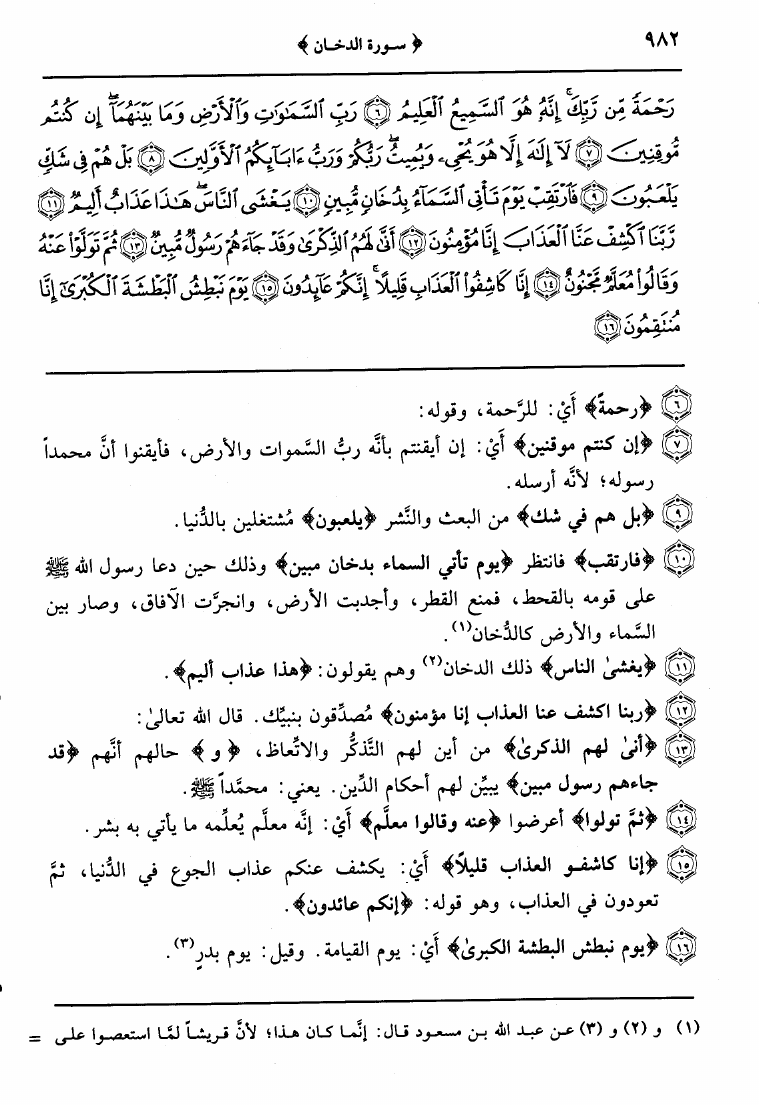 ٩٨٢
﴿ سورة الدخان ﴾
رَحْمَةً مِّن رَّبِّكَ ۚ إِنَّهُۥ هُوَ ٱلسَّمِيعُ ٱلْعَلِيمُ ۝٦ رَبِّ ٱلسَّمَٰوَٰتِ وَٱلْأَرْضِ وَمَا بَيْنَهُمَآ ۖ إِن كُنتُم
مُّوقِنِينَ ۝٧ لَآ إِلَٰهَ إِلَّا هُوَ يُحْىِۦ وَيُمِيتُ ۖ رَبُّكُمْ وَرَبُّ ءَابَآئِكُمُ ٱلْأَوَّلِينَ ۝٨ بَلْ هُمْ فِى شَكٍّ
يَلْعَبُونَ ۝٩ فَٱرْتَقِبْ يَوْمَ تَأْتِى ٱلسَّمَآءُ بِدُخَانٍ مُّبِينٍ ۝١٠ يَغْشَى ٱلنَّاسَ ۖ هَٰذَا عَذَابٌ أَلِيمٌ ۝١١
رَّبَّنَا ٱكْشِفْ عَنَّا ٱلْعَذَابَ إِنَّا مُؤْمِنُونَ ۝١٢ أَنَّىٰ لَهُمُ ٱلذِّكْرَىٰ وَقَدْ جَآءَهُمْ رَسُولٌ مُّبِينٌ ۝١٣ ثُمَّ تَوَلَّوْا۟ عَنْهُ
وَقَالُوا۟ مُعَلَّمٌ مَّجْنُونٌ ۝١٤ إِنَّا كَاشِفُوا۟ ٱلْعَذَابِ قَلِيلًا ۚ إِنَّكُمْ عَآئِدُونَ ۝١٥ يَوْمَ نَبْطِشُ ٱلْبَطْشَةَ ٱلْكُبْرَىٰٓ إِنَّا
مُنتَقِمُونَ ۝١٦
٦ ﴿رحمةً﴾ أَيْ: للرَّحمة، وقوله:
٧ ﴿إن كنتم موقنين﴾ أَيْ: إن أيقنتم بأنَّه ربُّ السَّموات والأرض، فأيقنوا أنَّ محمداً
رسوله؛ لأنَّه أرسله.
٩ ﴿بل هم في شك﴾ من البعث والنَّشر ﴿يلعبون﴾ مُشتغلين بالدُّنيا.
١٠ ﴿فارتقب﴾ فانتظر ﴿يوم تأتي السماء بدخان مبين﴾ وذلك حين دعا رسول الله ﷺ
على قومه بالقحط، فمنع القطر، وأجدبت الأرض، وانجرَّت الآفاق، وصار بين
السَّماء والأرض كالدُّخان(١).
١١ ﴿يغشىٰ الناس﴾ ذلك الدخان(٢) وهم يقولون: ﴿هذا عذاب أليم﴾.
١٢ ﴿ربنا اكشف عنا العذاب إنا مؤمنون﴾ مُصدِّقون بنبيِّك. قال الله تعالىٰ:
١٣ ﴿أنىٰ لهم الذكرىٰ﴾ من أين لهم التَّذكُّر والاتِّعاظ، ﴿ و ﴾ حالهم أنَّهم ﴿قد
جاءهم رسول مبين﴾ يبيِّن لهم أحكام الدِّين. يعني: محمَّداً ﷺ.
١٤ ﴿ثمَّ تولوا﴾ أعرضوا ﴿عنه وقالوا معلَّم﴾ أَيْ: إنَّه معلَّم يُعلِّمه ما يأتي به بشر.
١٥ ﴿إنا كاشفو العذاب قليلاً﴾ أَيْ: يكشف عنكم عذاب الجوع في الدُّنيا، ثمَّ
تعودون في العذاب، وهو قوله: ﴿إنكم عائدون﴾.
١٦ ﴿يوم نبطش البطشة الكبرىٰ﴾ أَيْ: يوم القيامة. وقيل: يوم بدرٍ(٣).
(١) و (٢) و (٣) عن عبد الله بن مسعود قال: إنَّما كان هذا؛ لأنَّ قريشاً لمَّا استعصوا على =